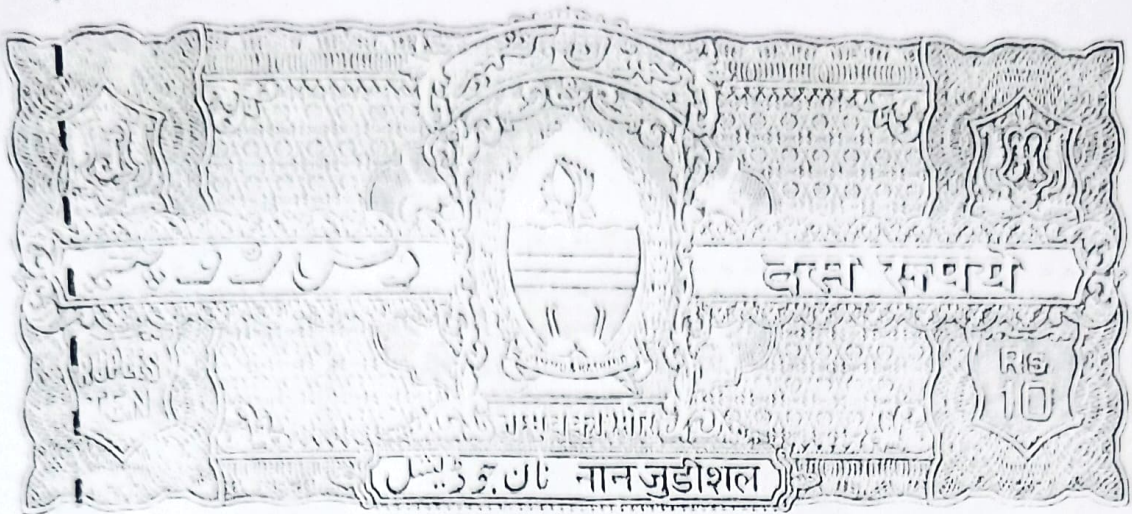 دس روپے दस रूपये
RUPEES
TEN
RS
10
نان جوڈیشل नान जुडीशल